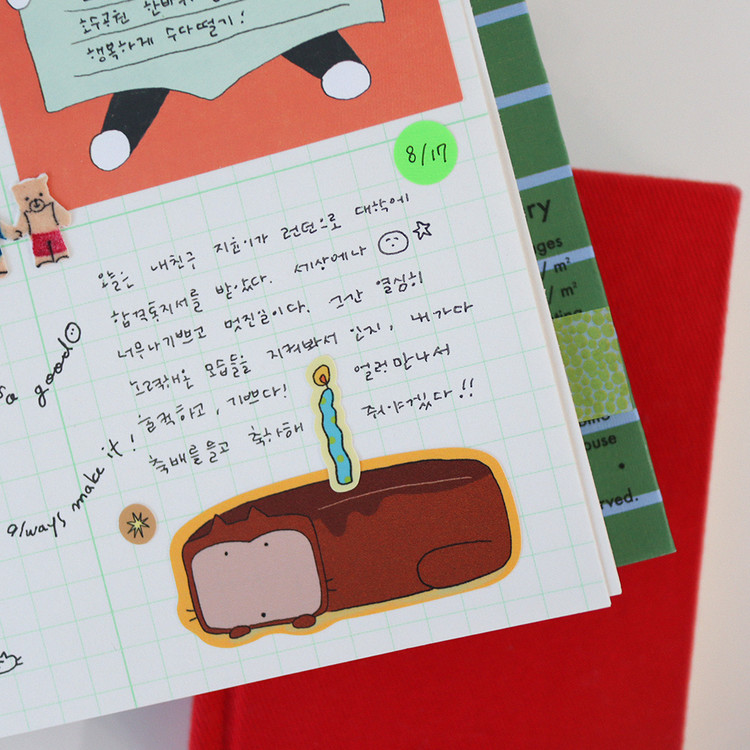 호수공원 한바퀴
행복하게 수다떨기!
8/17
오늘은 내친구 지윤이가 런던으로 대학에
합격통지서를 받았다. 세상에나
너무나기쁘고 멋진일이다. 그간 열심히
노력해온 모습들을 지켜봐서 인지, 내가다
훌쩍하고, 기쁘다! 얼런만나서
축배를들고 축하해 줘야겠다!!
a good
always make it!
ry
ges
/ m²
/ m²
ouse
rved.